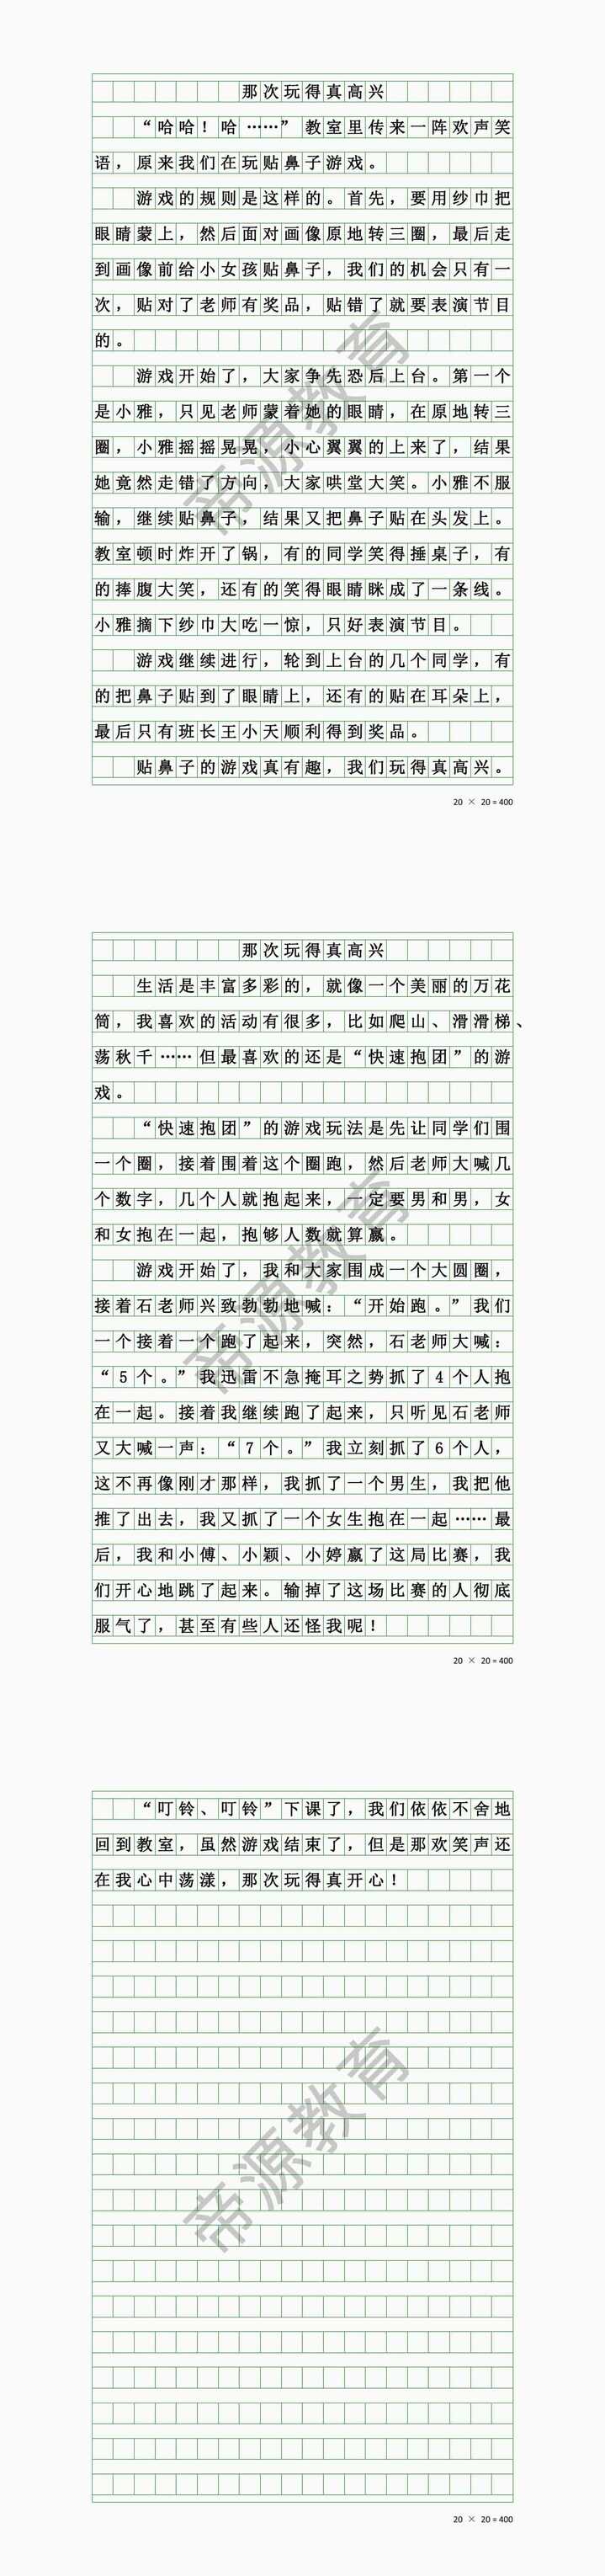 那次玩得真高兴
“哈哈！哈……”教室里传来一阵欢声笑
语，原来我们在玩贴鼻子游戏。
游戏的规则是这样的。首先，要用纱巾把
眼睛蒙上，然后面对画像原地转三圈，最后走
到画像前给小女孩贴鼻子，我们的机会只有一
次，贴对了老师有奖品，贴错了就要表演节目
的。
游戏开始了，大家争先恐后上台。第一个
是小雅，只见老师蒙着她的眼睛，在原地转三
圈，小雅摇摇晃晃，小心翼翼的上来了，结果
她竟然走错了方向，大家哄堂大笑。小雅不服
输，继续贴鼻子，结果又把鼻子贴在头发上。
教室顿时炸开了锅，有的同学笑得捶桌子，有
的捧腹大笑，还有的笑得眼睛眯成了一条线。
小雅摘下纱巾大吃一惊，只好表演节目。
游戏继续进行，轮到上台的几个同学，有
的把鼻子贴到了眼睛上，还有的贴在耳朵上，
最后只有班长王小天顺利得到奖品。
贴鼻子的游戏真有趣，我们玩得真高兴。
20 × 20 = 400
那次玩得真高兴
生活是丰富多彩的，就像一个美丽的万花
筒，我喜欢的活动有很多，比如爬山、滑滑梯、
荡秋千……但最喜欢的还是“快速抱团”的游
戏。
“快速抱团”的游戏玩法是先让同学们围
一个圈，接着围着这个圈跑，然后老师大喊几
个数字，几个人就抱起来，一定要男和男，女
和女抱在一起，抱够人数就算赢。
游戏开始了，我和大家围成一个大圆圈，
接着石老师兴致勃勃地喊：“开始跑。”我们
一个接着一个跑了起来，突然，石老师大喊：
“5个。”我迅雷不急掩耳之势抓了4个人抱
在一起。接着我继续跑了起来，只听见石老师
又大喊一声：“7个。”我立刻抓了6个人，
这不再像刚才那样，我抓了一个男生，我把他
推了出去，我又抓了一个女生抱在一起……最
后，我和小傅、小颖、小婷赢了这局比赛，我
们开心地跳了起来。输掉了这场比赛的人彻底
服气了，甚至有些人还怪我呢！
20 × 20 = 400
“叮铃、叮铃”下课了，我们依依不舍地
回到教室，虽然游戏结束了，但是那欢笑声还
在我心中荡漾，那次玩得真开心！
20 × 20 = 400
帝源教育
帝源教育
帝源教育